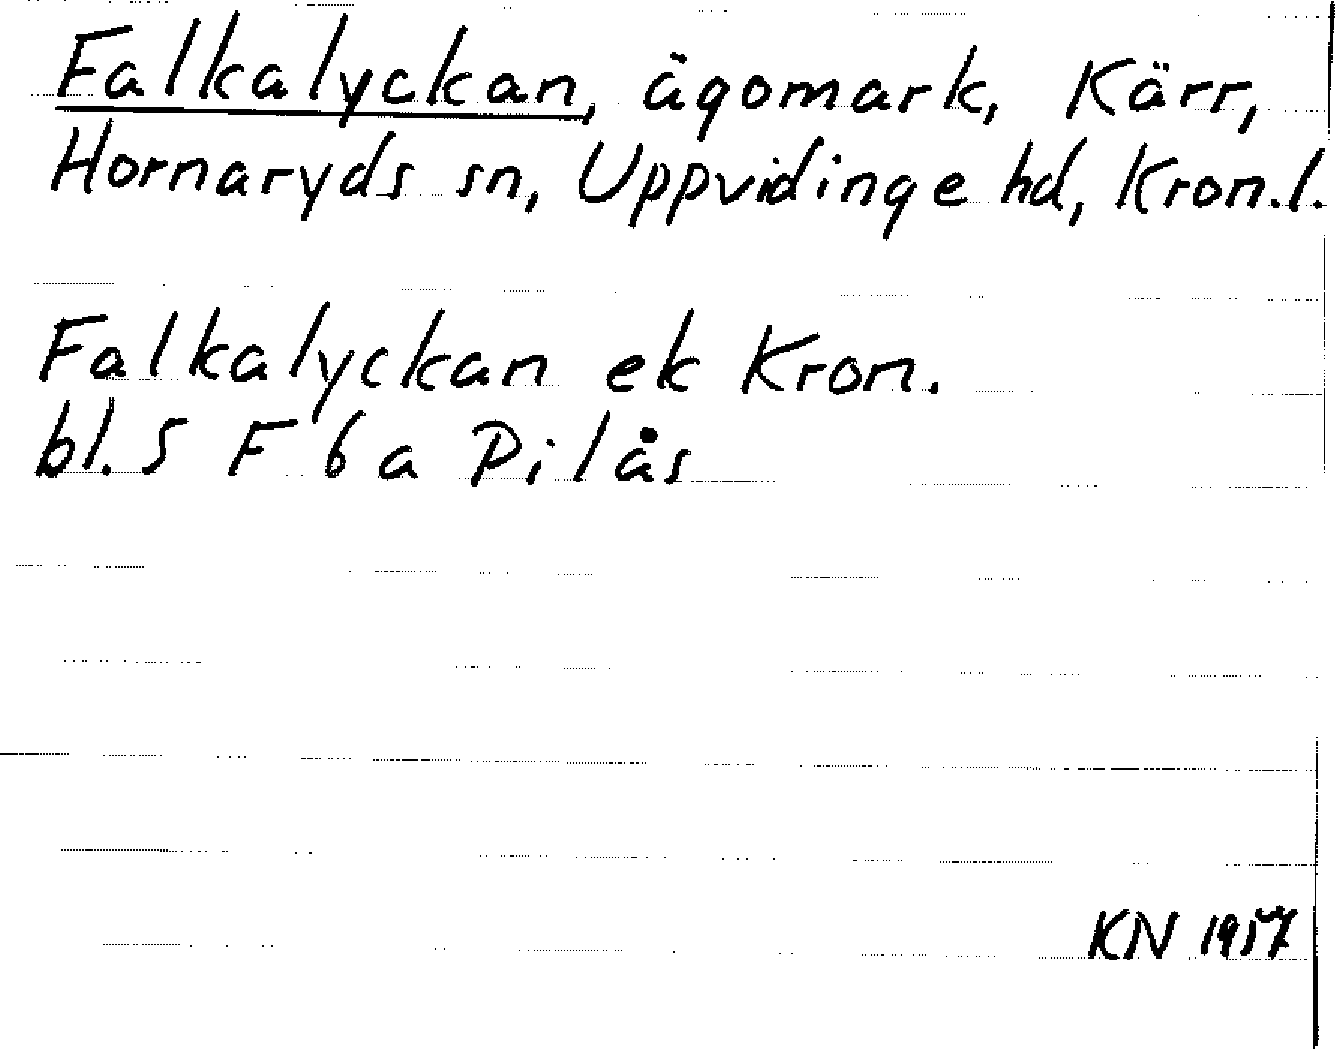 Falkalyckan, ägomark, Kärr,
Hornaryds sn, Uppvidinge hd, Kron.l.
Falkalyckan ek Kron.
bl. 5 F 6 a Pilås
KN 1957